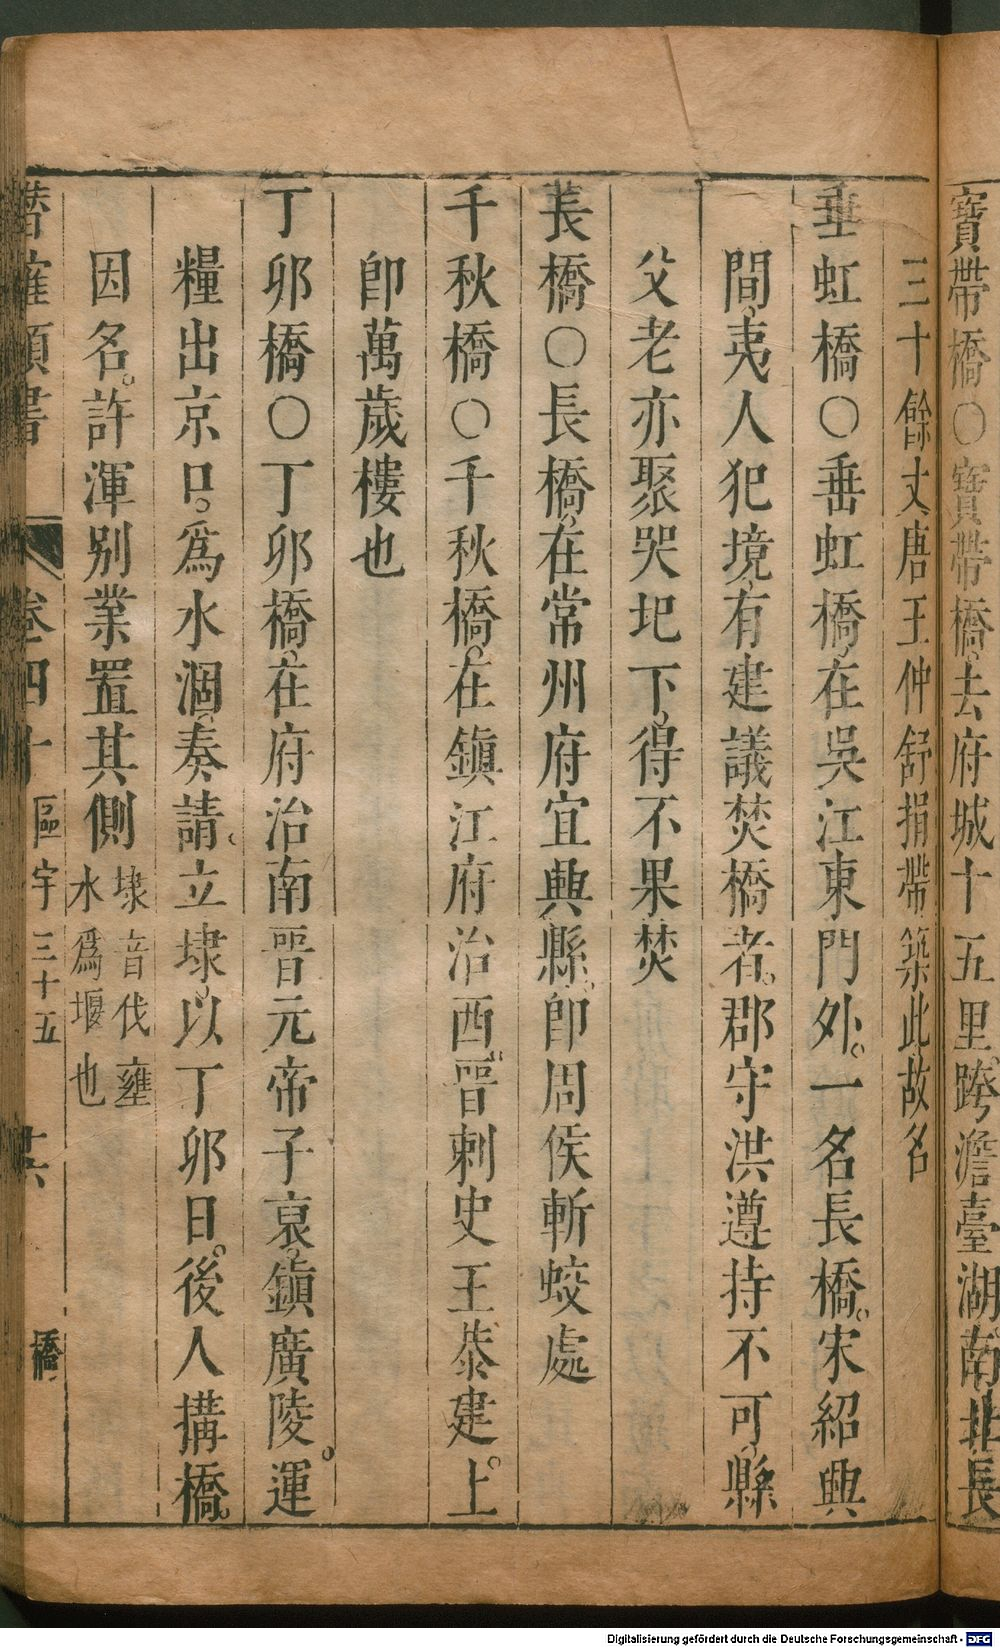 寶帶橋○寶帶橋去府城十五里跨澹臺湖南北長
三十餘丈唐王仲舒捐帶築此故名
垂虹橋○垂虹橋在吳江東門外一名長橋宋紹興
間夷人犯境有建議焚橋者郡守洪遵持不可縣
父老亦聚哭圯下得不果焚
長橋○長橋在常州府宜興縣卽周侯斬蛟處
千秋橋○千秋橋在鎮江府治西晉刺史王恭建上
卽萬歲樓也
丁卯橋○丁卯橋在府治南晉元帝子裒鎮廣陵運
糧出京口爲水涸奏請立埭以丁卯日後人搆橋
因名許渾别業置其側埭音伐壅水爲堰也
潛確類書 卷四十 區宇三十五 橋
Digitalisierung gefördert durch die Deutsche Forschungsgemeinschaft - DFG